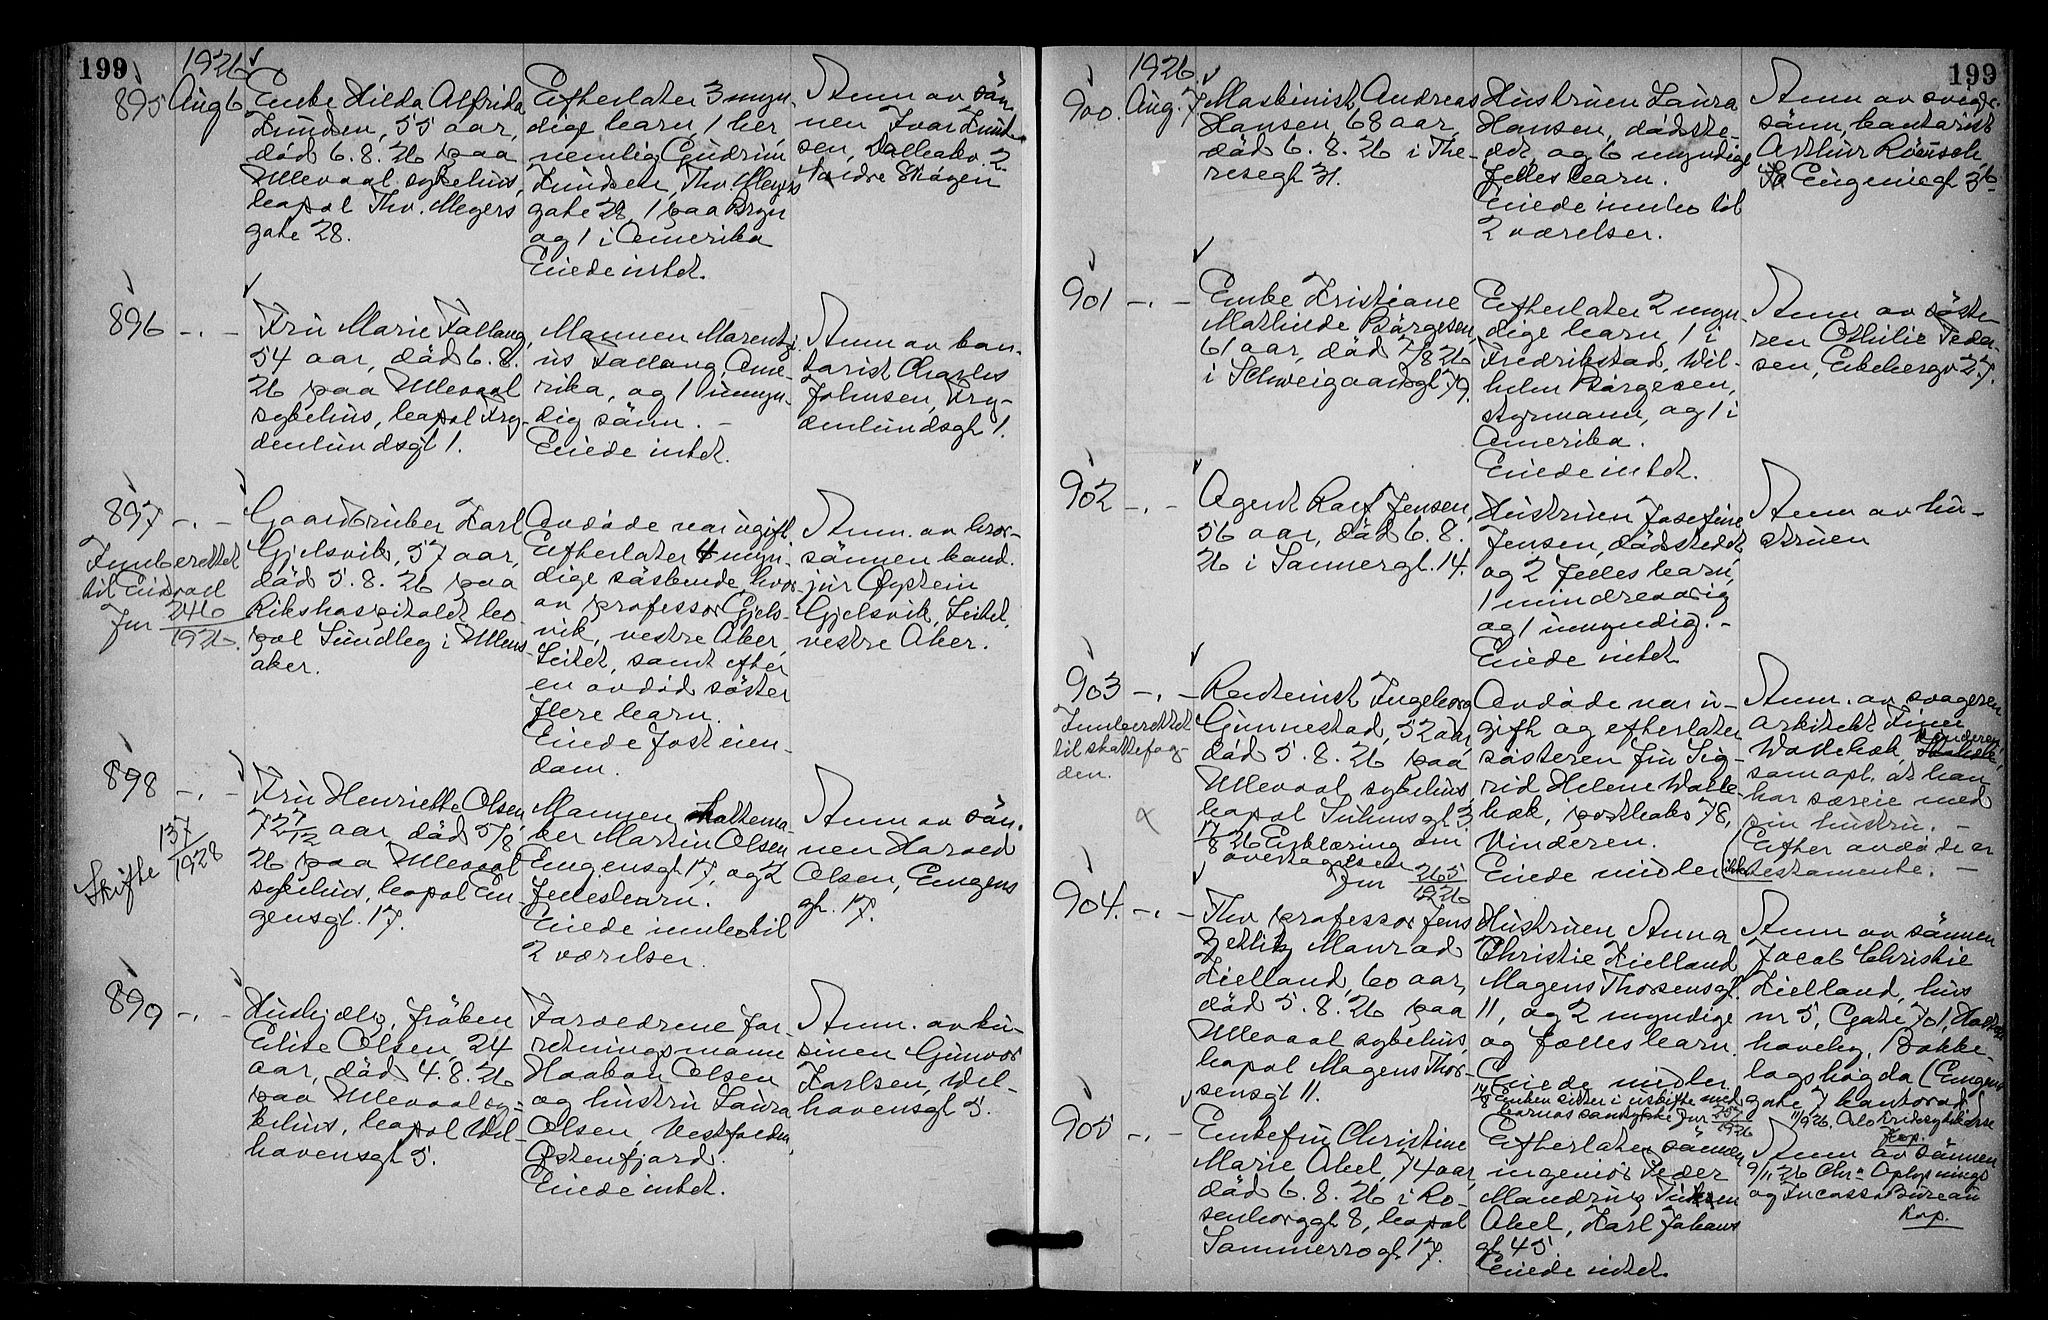 199
1926
895 Aug 6
Enke Hilda Alfrida
Knudsen, 55 aar,
død 6.8.26 paa
Ullevaal sykehus,
bopæl Thv. Meyers
gate 28.
Efterlater 3 myn-
dige barn, 1 her
nemlig Gudrun
Knudsen, Thv. Meyers
gate 28, 1 paa Bryn
og 1 i Amerika
Eiede intet.
Anm. av søn-
nen Ivar Knud-
sen,
Nordre Skøyen
896 -.-
Fru Marie Fallang,
54 aar, død 6.8.
26 paa Ullevaal
sykehus, bopæl Fry-
denlundsgt 1.
Mannen Marenti-
us Fallang, Ame-
rika, og 1 umyn-
dig sønn. -
Eiede intet.
Anm. av kon-
torist Charles
Johnsen, Fry-
denlundsgt 1.
897 -.-
Innberettet
til Eidsvoll
Jnr 246/1926.
Gaardbruker Karl
Gjelsvik, 57 aar,
død 5.8.26 paa
Rikshospitalet bo-
pæl Sundby i Ullens-
aker.
Avdøde var ugift
Efterlater 4 myn-
dige søskende hvor
av professor Gjels-
vik, vestre Aker,
Heitet, samt efter
en avdød søster
flere barn.
Eiede fast eien-
dom.
Anm. av bror-
sønnen kand.
jur Øystein
Gjelsvik,
vestre Aker.
898 -.-
Skifte 137/1928
Fru Henriette Olsen
72 7/12 aar, død 5/8
26 paa Ullevaal
sykehus, bopæl Eu-
gensgt. 17.
Mannen hattema-
ker Martin Olsen
Eugensgt 17, og 2
fellesbarn.
Eiede innbo til
2 værelser.
Anm av søn-
nen Harald
Olsen, Eugens
gt. 17.
899 -.-
Hushjelp, frøken
Elise Olsen, 24
aar, død 4.8.26
paa Ullevaal sy-
kehus, bopæl Wil-
havensgt 5.
Forældrene for-
retningsmann
Haakon Olsen
og hustru Laura
Olsen, Vestfolden,
Østenfjord.
Eiede intet.
Anm. av ku-
sinen Gunvor
Karlsen, Wil-
havensgt 5.
199
1926.
900. Aug. 7
Maskinist Andreas
Hansen, 68 aar,
død 6.8.26 i The-
resegt 31.
Hustruen Laura
Hansen, dødste-
det, og 6 myndige
fellesbarn.
Eiede innbo til
2 værelser.
Anm av sviger-
sønn, kontorist
Arthur Rönsch,
Eugeniegt 3b
901 -.-
Enke Kristiane
Mathilde Børgesen,
61 aar, død 7/8 26
i Schweigaardsgt 79.
Efterlater 2 myn-
dige barn, 1 i
Fredrikstad, Wil-
helm Børgesen,
styrmann, og 1 i
Amerika.
Eiede intet.
Anm av søste
ren Othilie Peder-
sen, Ekebergv 27.
902 -.-
Agent Rolf Jensen,
56 aar, død 6.8.
26 i Sannergt. 14.
Hustruen Josefine
Jensen, dødstedet
og 2 felles barn,
1 mindreaarig
og 1 umyndig. -
Eiede intet
Anm av hu-
struen
903 -.-
Innberettet
til skattefog-
den.
Rentenist Ingeborg
Gunnestad, 52 aar,
død 5.8.26 paa
Ullevaal sykehus
bopæl Suhmsgt 3.
17/8 26 Erklæring om
overtagelsen
Jnr 265/1926
Avdøde var u-
gift og efterlater
søsteren fru Sig-
rid Helene Walle-
bæk, postboks 78,
Vinderen.
Eiede midler
Anm. av svogeren
arkitekt Finn
Wallebæk, Vinderen,
som opl. at han
har særeie med
sin hustru. -
(Efter avdøde er
ikke testamente. -
904. -.-
Fhv professor Jens
Zetlitz Monrad
Kielland, 60 aar,
død 5.8.26 paa
Ullevaal sykehus,
bopæl Magens Thor-
sensgt 11.
Hustruen Anna
Christie Kielland
Magens Thorsensgt.
11, og 2 myndige
og fælles barn.
Eiede midler
14/8 Enken sitter i uskifte med
barnas samtykke Jnr 257/1926
Anm av sønnen
Jacob Christie
Kielland, hus
nr 5, Gate 701,
haveby, Bakke-
lagshøgda (Eugens
gate 7 kontorad.)
11/9 26. Oslo Kredsykekasse
Kop.
905 -.-
Enkefru Christine
Marie Abel, 74 aar,
død 6.8.26 i Ro-
senborggt 8, bopæl
Sommerrogt 17.
Efterlater sønnen
ingeniør Peder
Mandrup Tuxen
Abel, Karl Johans
gt 45
Eiede intet.
Anm av sønnen
9/11 26 Chr.a Oplysnings
og Incasso Bureau
Kop.